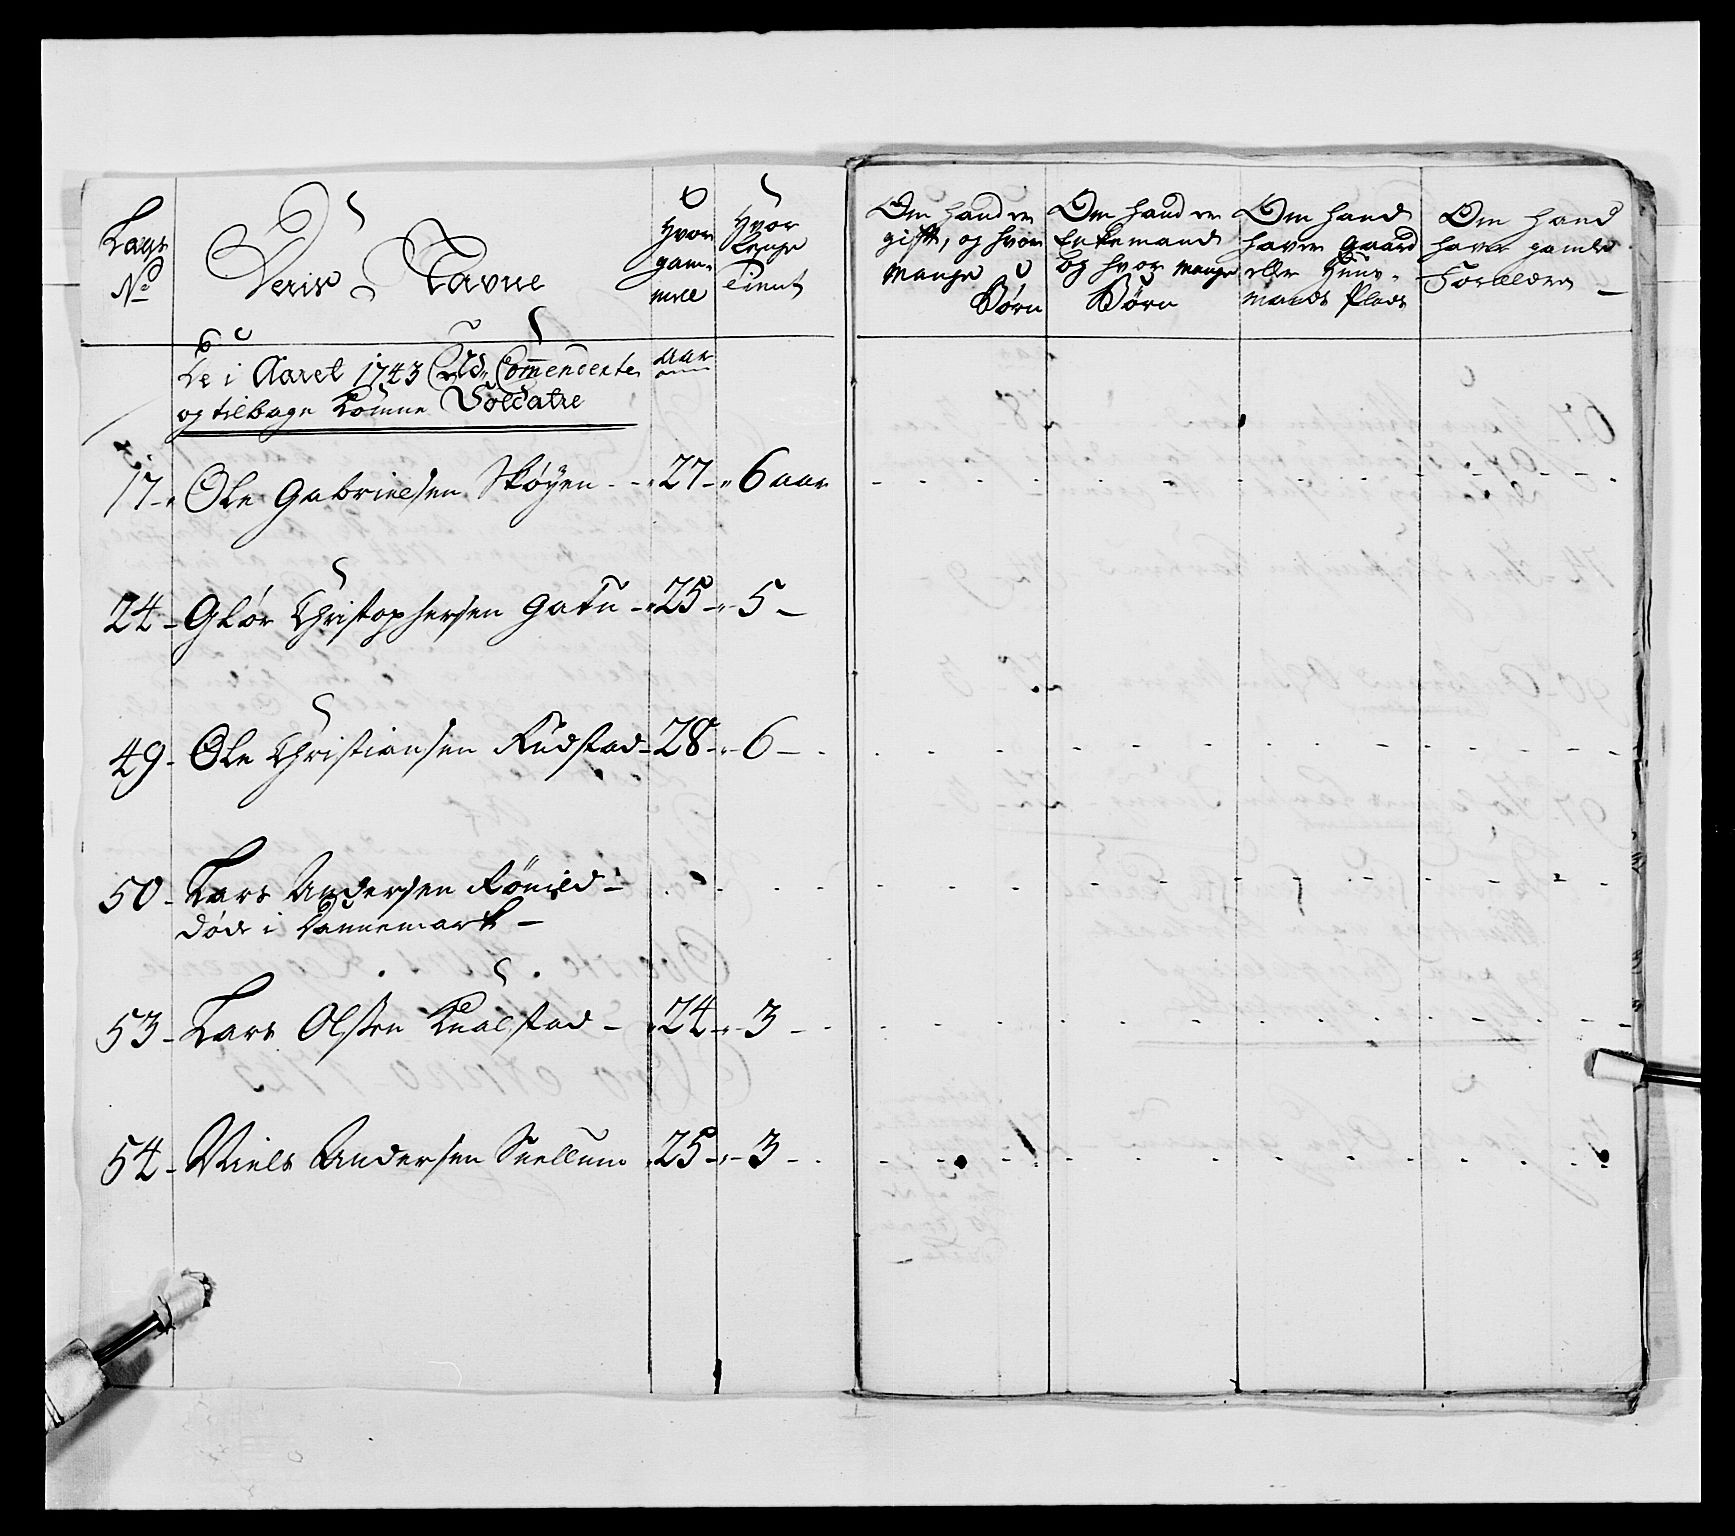 Lægs
No
Deris Navne
Hvor
gam-
mell
Hvor
Lenge
Tient
Om hand er
gift, og hvor
mange
Børn
Om hand er
Enkemand
og hvor mange
Børn
Om hand
haver gaard
eller Huus-
mands Plads
Om hand
haver gamle
Forældre
De i Aaret 1743 Ud Commenderte
og tilbage komne Soldatre
aar
17 - Ole Gabrielsen Skøyen - 27 - 6 aar
24 - Glør Christophersen Gatu - 25 - 5 -
49 - Ole Christiansen Rudstad - 28 - 6 -
50 - Lars Andersen Rönild -
døde i Dannemark -
53 - Lars Olsen Kualstad - 24 - 3 -
54 - Niels Andersen Suellum 25 - 3 -